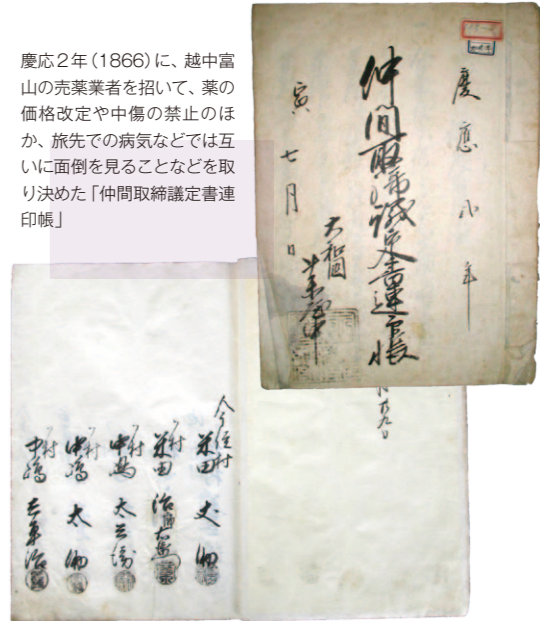 慶応2年(1866)に、越中富
山の売薬業者を招いて、薬の
価格改定や中傷の禁止のほ
か、旅先での病気などでは互
いに面倒を見ることなどを取
り決めた「仲間取締議定書連
印帳」
慶應二年
仲間取締議定書連印帳
寅七月日
大和国
今住村
米田丈助
〃村
米田治郎右衛
〃村
中嶋太兵衛
〃村
中嶋太助
〃村
中嶋吉平治